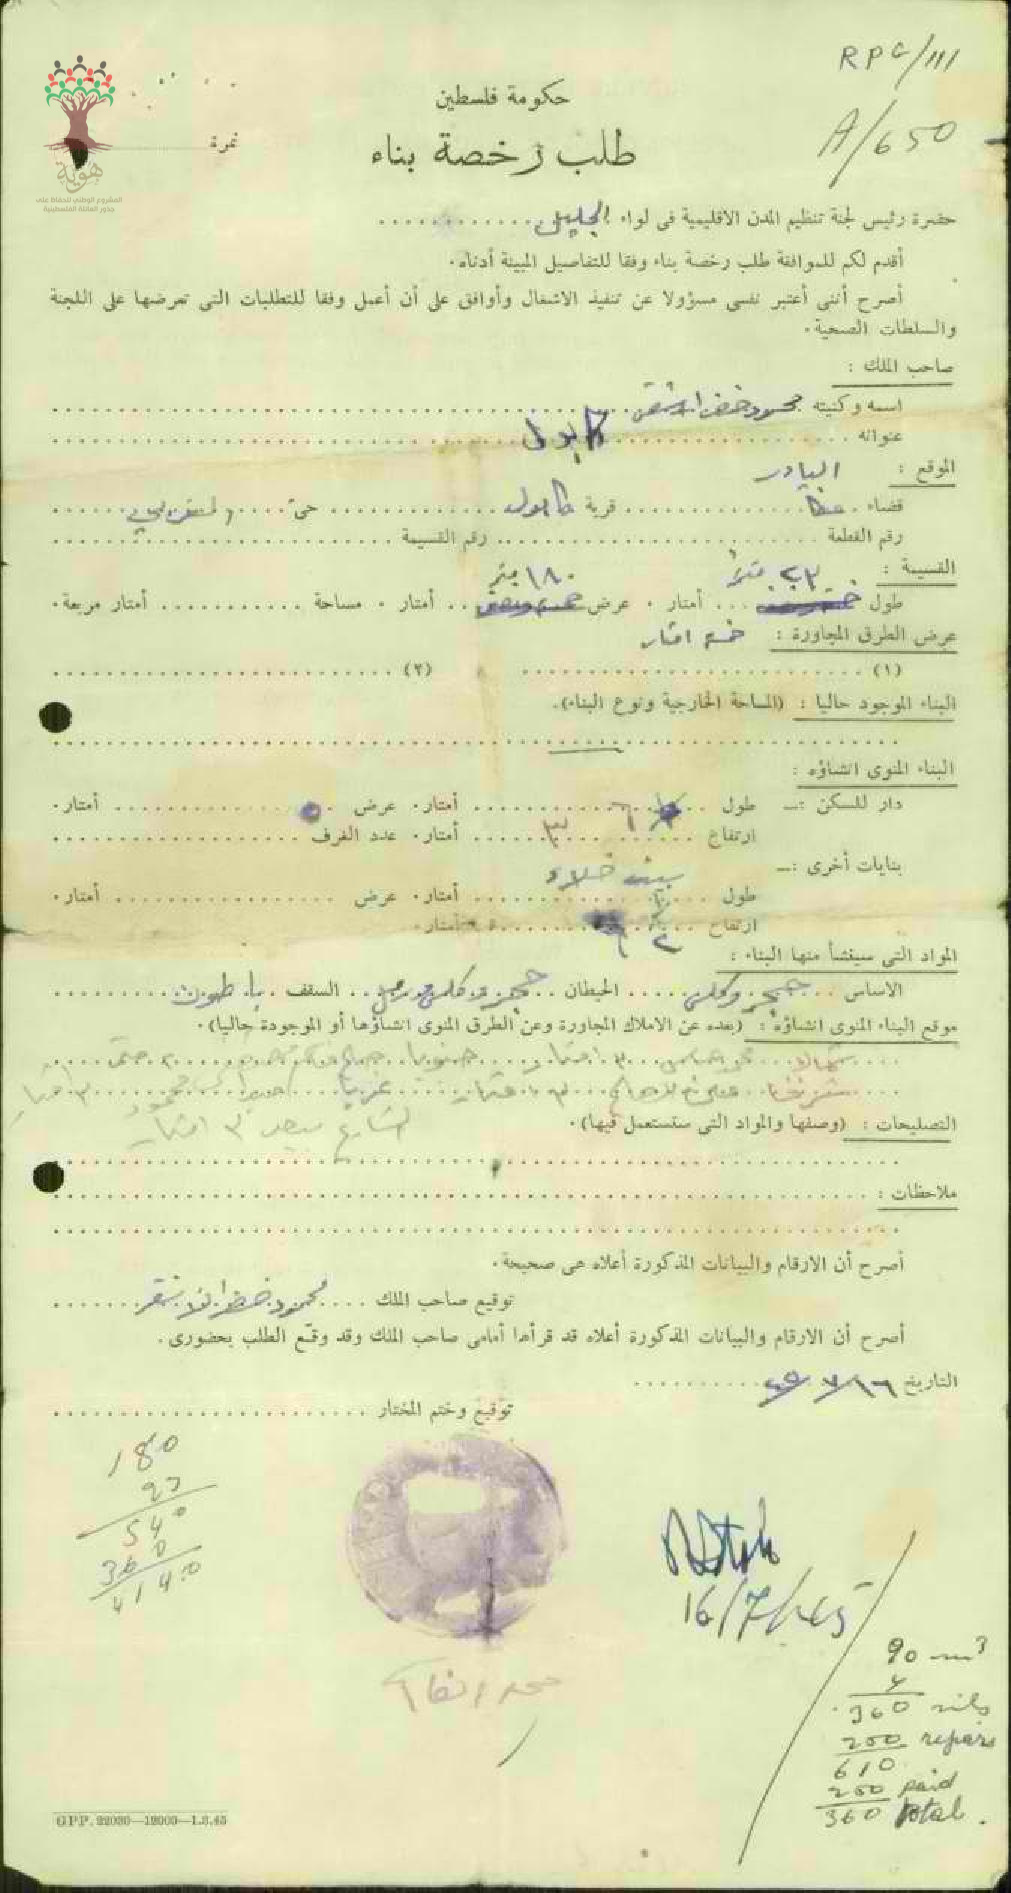 RPC/111
حكومة فلسطين
A/650
طلب رخصة بناء
نمرة
هوية
المشروع الوطني للحفاظ على
جذور العائلة الفلسطينية
حضرة رئيس لجنة تنظيم المدن الاقليمية فى لواء الجليل
أقدم لكم للموافقة طلب رخصة بناء وفقا للتفاصيل المبينة أدناه.
أصرح أننى أعتبر نفسى مسؤولا عن تنفيذ الاشغال وأوافق على أن أعمل وفقا للتطلبات التى تعرضها على اللجنة
والسلطات الصحية.
صاحب الملك :
اسمه وكنيته محمود خضر الاشقر
عنوانه كابول
الموقع : البيادر
قضاء عكا قرية كابول حىّ
رقم القطعة رقم القسيمة
القسيمة : ٢٣ متراً ١٨٠ متر
طول أمتار . عرض أمتار . مساحة أمتار مربعة.
عرض الطرق المجاورة : خمسة امتار
(١) (٢)
البناء الموجود حاليا : (المساحة الخارجية ونوع البناء).
البناء المنوى انشاؤه :
دار للسكن :ـ طول ٦ أمتار. عرض ٥ أمتار.
ارتفاع ٣ أمتار. عدد الغرف
بنايات أخرى :ـ بيت خلاء
طول أمتار. عرض أمتار.
ارتفاع ٢ أمتار.
المواد التى سينشأ منها البناء :
الاساس حجر وكلس الحيطان حجر و كلس ورمل السقف باطون
موقع البناء المنوى انشاؤه : (بعده عن الاملاك المجاورة وعن الطرق المنوى انشاؤها أو الموجودة حاليا).
شمالا ٣ امتار جنوبا
شرقا ٣ امتار غربا ٣ امتار
الشارع يبعد ٣ امتار
التصليحات : (وصفها والمواد التى ستستعمل فيها).
ملاحظات :
أصرح أن الارقام والبيانات المذكورة أعلاه هى صحيحة.
توقيع صاحب الملك محمود خضر الاشقر
أصرح أن الارقام والبيانات المذكورة أعلاه قد قرأها أمامى صاحب الملك وقد وقّع الطلب بحضورى.
التاريخ ١٦/٧/٤٥
توقيع وختم المختار
180
23
540
360
4140
16/7/45
90 m3
4
360 mils
250 repairs
610
250 paid
360 total.
GPP. 22030—12000—1.3.45